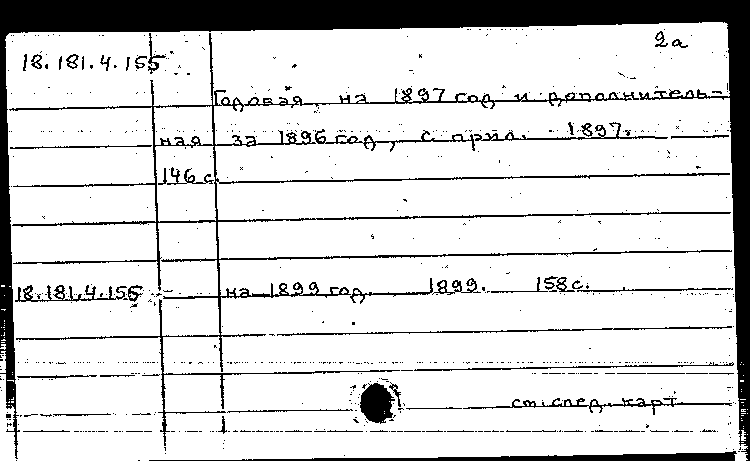 2а
18.181.4.155
Годовая, на 1897 год и дополнитель-
ная за 1896 год, с прил. 1897.
146 с.
18.181.4.155 - на 1899 год. 1899. 158 с.
см. след. карт